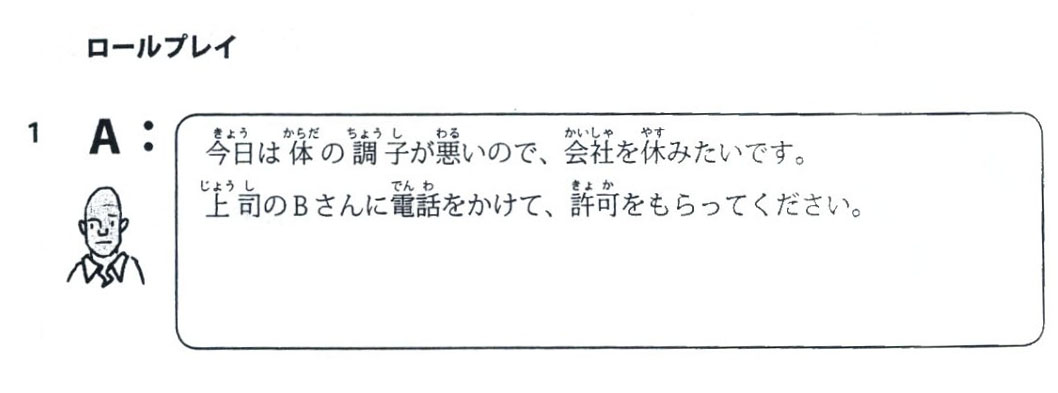 ロールプレイ
1 A：
きょう からだ ちょうし わる かいしゃ やす
今日は体の調子が悪いので、会社を休みたいです。
じょうし でんわ きょか
上司のBさんに電話をかけて、許可をもらってください。